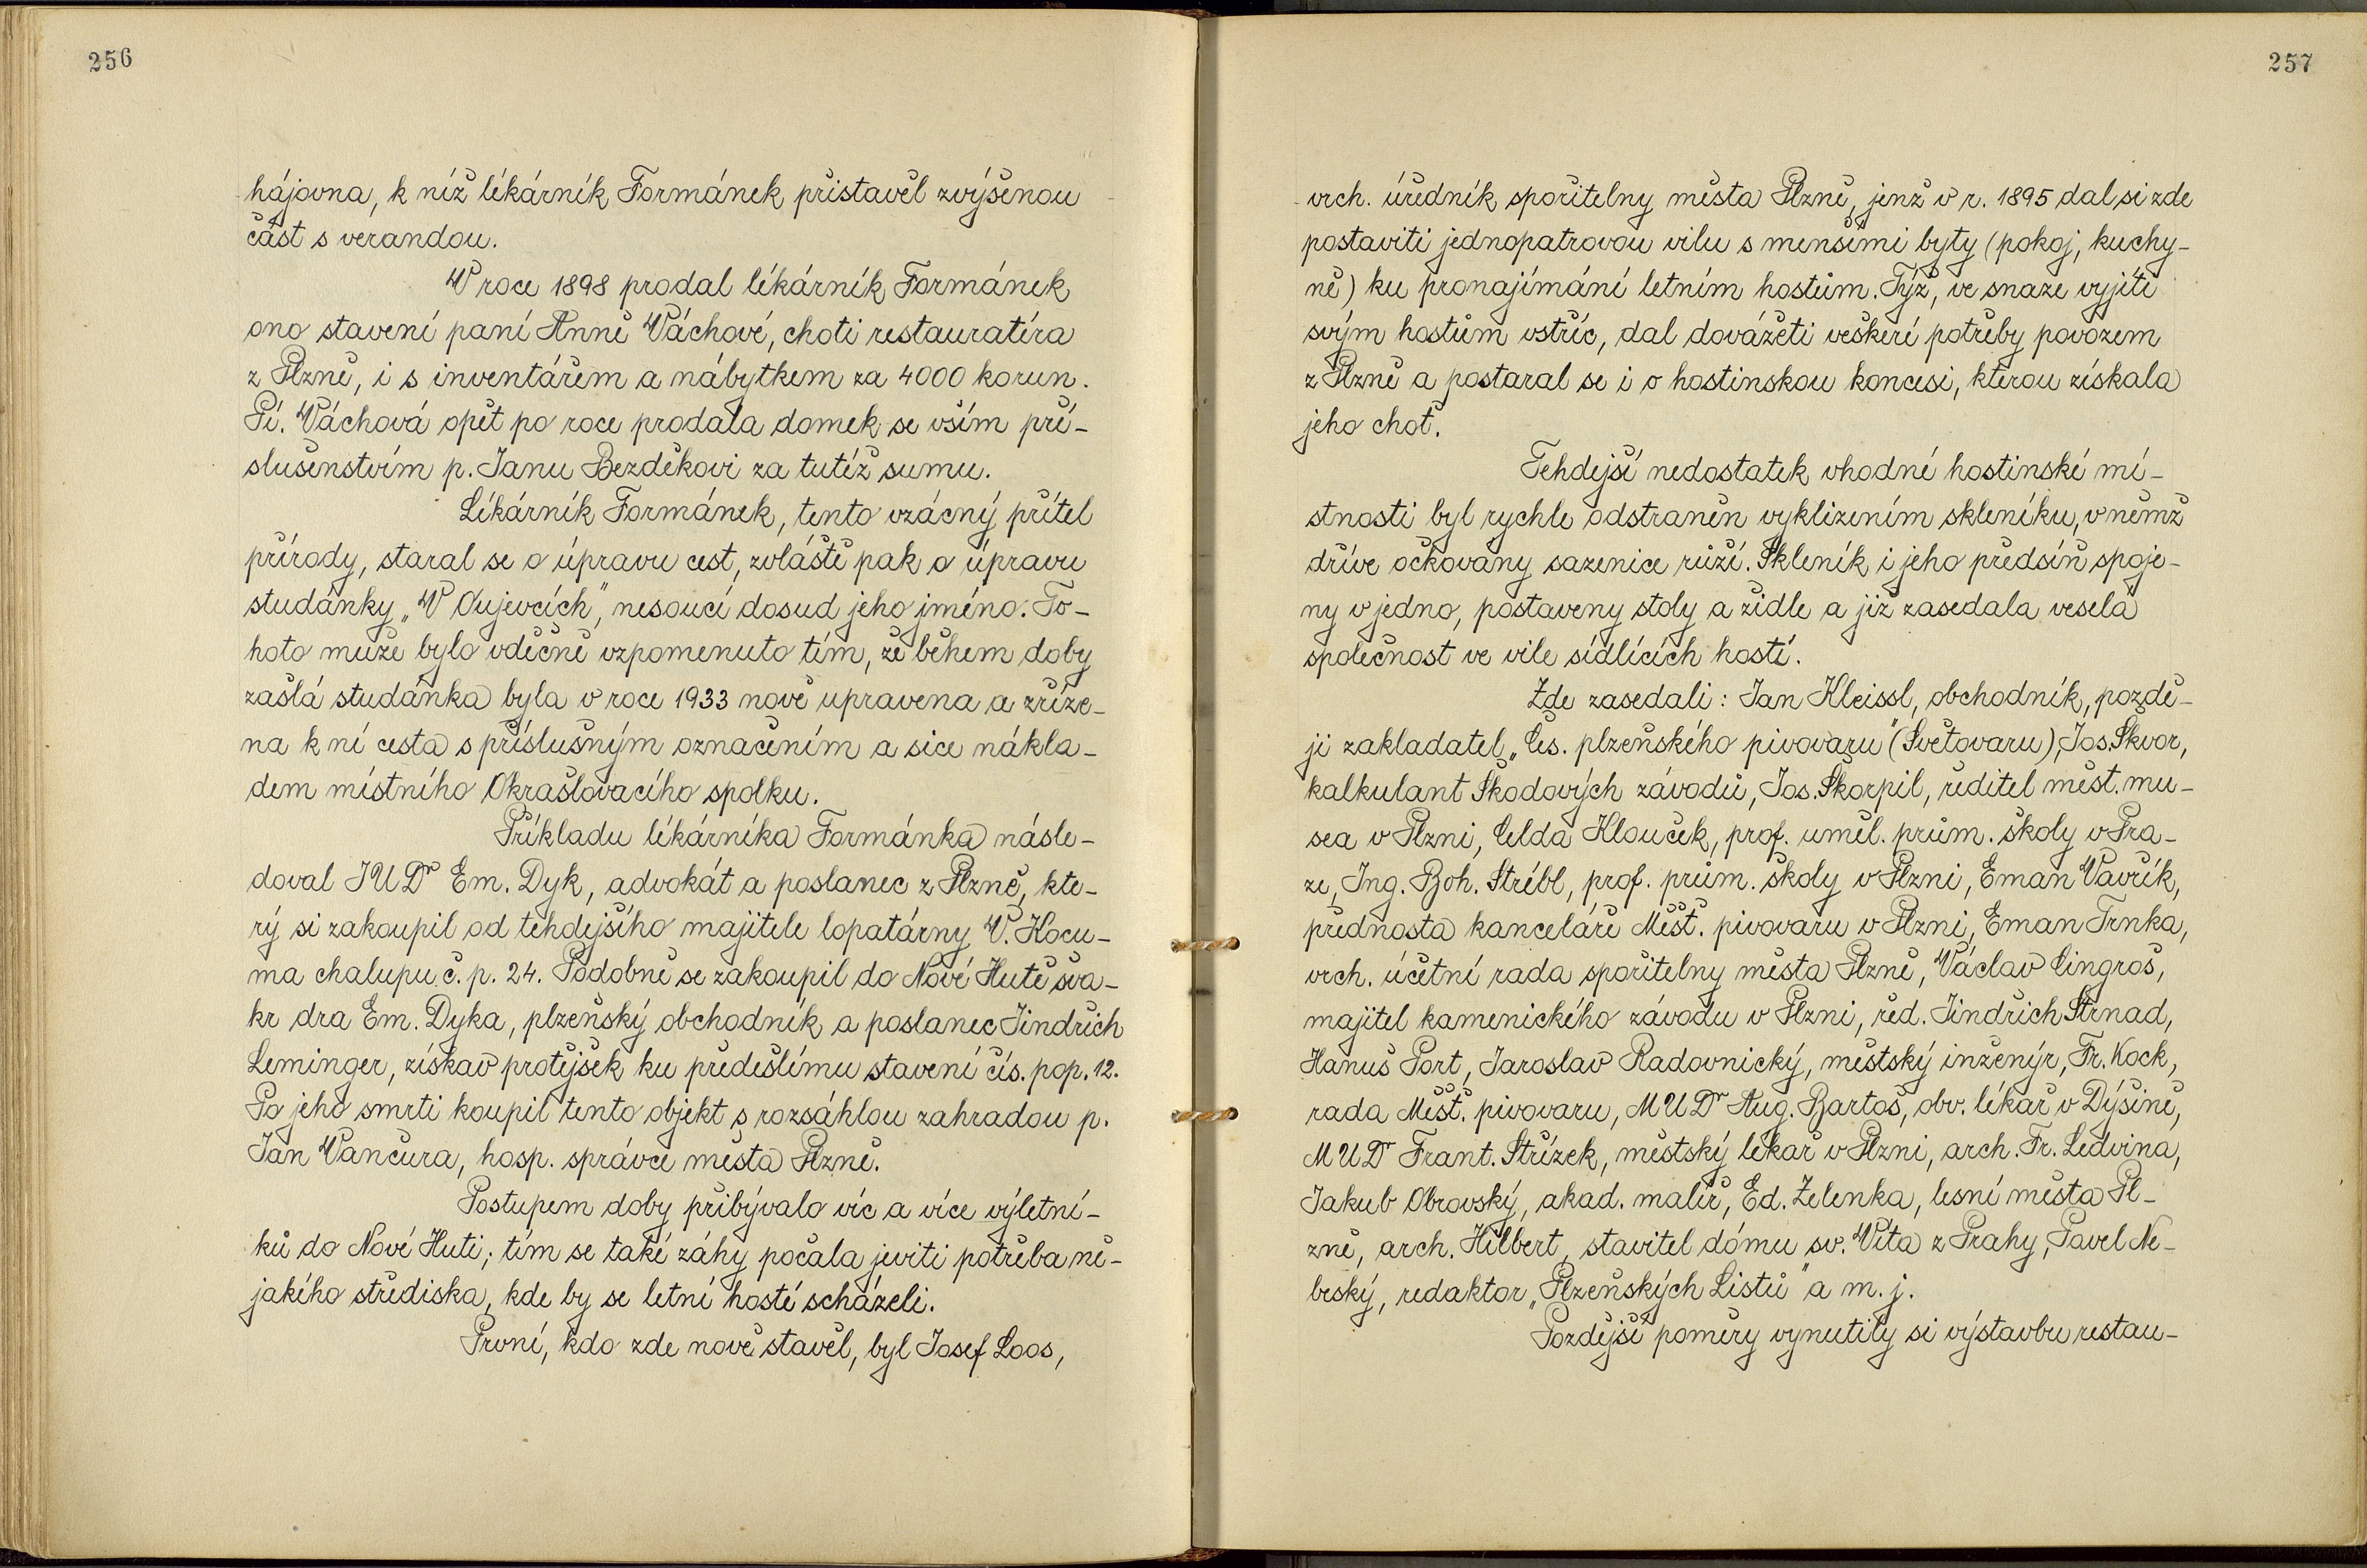 256
hájovna, k níž lékárník Formánek přistavěl zvýšenou
část s verandou.
V roce 1898 prodal lékárník Formánek
ono stavení paní Anně Váchové, choti restauratéra
z Plzně, i s inventářem a nábytkem za 4000 korun.
Pí. Váchová opět po roce prodala domek se vším pří-
slušenstvím p. Janu Bezděkovi za tutéž sumu.
Lékárník Formánek, tento vzácný přítel
přírody, staral se o úpravu cest, zvláště pak o úpravu
studánky „V Oujevcích", nesoucí dosud jeho jméno. To-
hoto muže bylo vděčně vzpomenuto tím, že během doby
zašlá studánka byla v roce 1933 nově upravena a zříze-
na k ní cesta s příslušným označením a sice nákla-
dem místního Okrašlovacího spolku.
Příkladu lékárníka Formánka násle-
doval JUDr Em. Dyk, advokát a poslanec z Plzně, kte-
rý si zakoupil od tehdejšího majitele lopatárny V. Hocu-
ma chalupu č. p. 24. Podobně se zakoupil do Nové Hutě šva-
kr dra Em. Dyka, plzeňský obchodník a poslanec Jindřich
Leminger, získav protějšek ku předešlému stavení čís. pop. 12.
Po jeho smrti koupil tento objekt s rozsáhlou zahradou p.
Jan Vančura, hosp. správce města Plzně.
Postupem doby přibývalo víc a více výletní-
ků do Nové Huti; tím se také záhy počala jeviti potřeba ně-
jakého střediska, kde by se letní hosté scházeli.
První, kdo zde nově stavěl, byl Josef Loos,
257
vrch. úředník spořitelny města Plzně, jenž v r. 1895 dal si zde
postaviti jednopatrovou vilu s menšími byty (pokoj, kuchy-
ně) ku pronajímání letním hostům. Týž, ve snaze vyjíti
svým hostům vstříc, dal dovážeti veškeré potřeby povozem
z Plzně a postaral se i o hostinskou koncesi, kterou získala
jeho choť.
Tehdejší nedostatek vhodné hostinské mí-
stnosti byl rychle odstraněn vyklizením skleníku, v němž
dříve očkovány sazenice růží. Skleník i jeho předsíň spoje-
ny v jedno, postaveny stoly a židle a již zasedala veselá
společnost ve vile sídlících hostí.
Zde zasedali: Jan Kleissl, obchodník, pozdě-
ji zakladatel „Čes. plzeňského pivovaru" (Světovaru), Jos. Škvor,
kalkulant Škodových závodů, Jos. Škorpil, ředitel měst. mu-
sea v Plzni, Čelda Klouček, prof. uměl. prům. školy v Pra-
ze, Ing. Boh. Strébl, prof. prům. školy v Plzni, Eman Vavřík,
přednosta kanceláře Měšť. pivovaru v Plzni, Eman Trnka,
vrch. účetní rada spořitelny města Plzně, Václav Cingroš,
majitel kamenického závodu v Plzni, řed. Jindřich Strnad,
Hanuš Port, Jaroslav Radovnický, městský inženýr, Fr. Kock,
rada Měšť. pivovaru, MUDr Aug. Bartoš, obv. lékař v Dýšině,
MUDr Frant. Střízek, městský lékař v Plzni, arch. Fr. Ledvina,
Jakub Obrovský, akad. malíř, Ed. Zelenka, lesní města Pl-
zně, arch. Hilbert, stavitel dómu sv. Víta z Prahy, Pavel Ne-
beský, redaktor „Plzeňských Listů" a m. j.
Pozdější poměry vynutily si výstavbu restau-